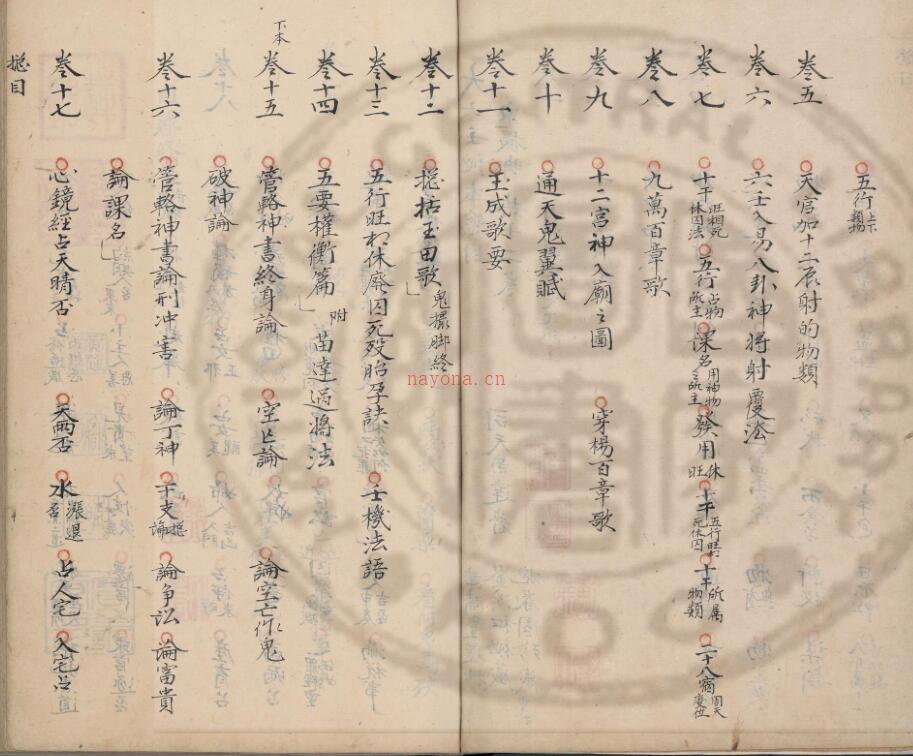 五行 上下 物類
卷五 天官加十二辰射的物類
卷六 六壬入易八卦神將射覆法
卷七 十干 旺相死休囚法 五行 占物所主 課名 用神物之所主 發用 休旺 十干 五行旺死休囚 十干 所属物類 二十八宿 周天度位
卷八 九萬百章歌
卷九 十二宮神入廟之圖 穿楊百章歌
卷十 通天鬼翼賦
卷十一 玉成歌要
卷十二 捴括玉田歌 鬼撮脚終
卷十三 五行旺相休廢囚死殁胎孕訣 士機法語
卷十四 五要權衡篇 附 苗達過將法
下本
卷十五 管輅神書終身論 空亡論 論空亡作鬼
破神論
卷十六 管輅神書論刑冲害 論丁神 干支 捴論 論爭訟 論富貴
論課名
卷十七 心鏡經占天晴否 天雨否 水 漲退否 占人宅 入宅占
捴目
nayona.cn